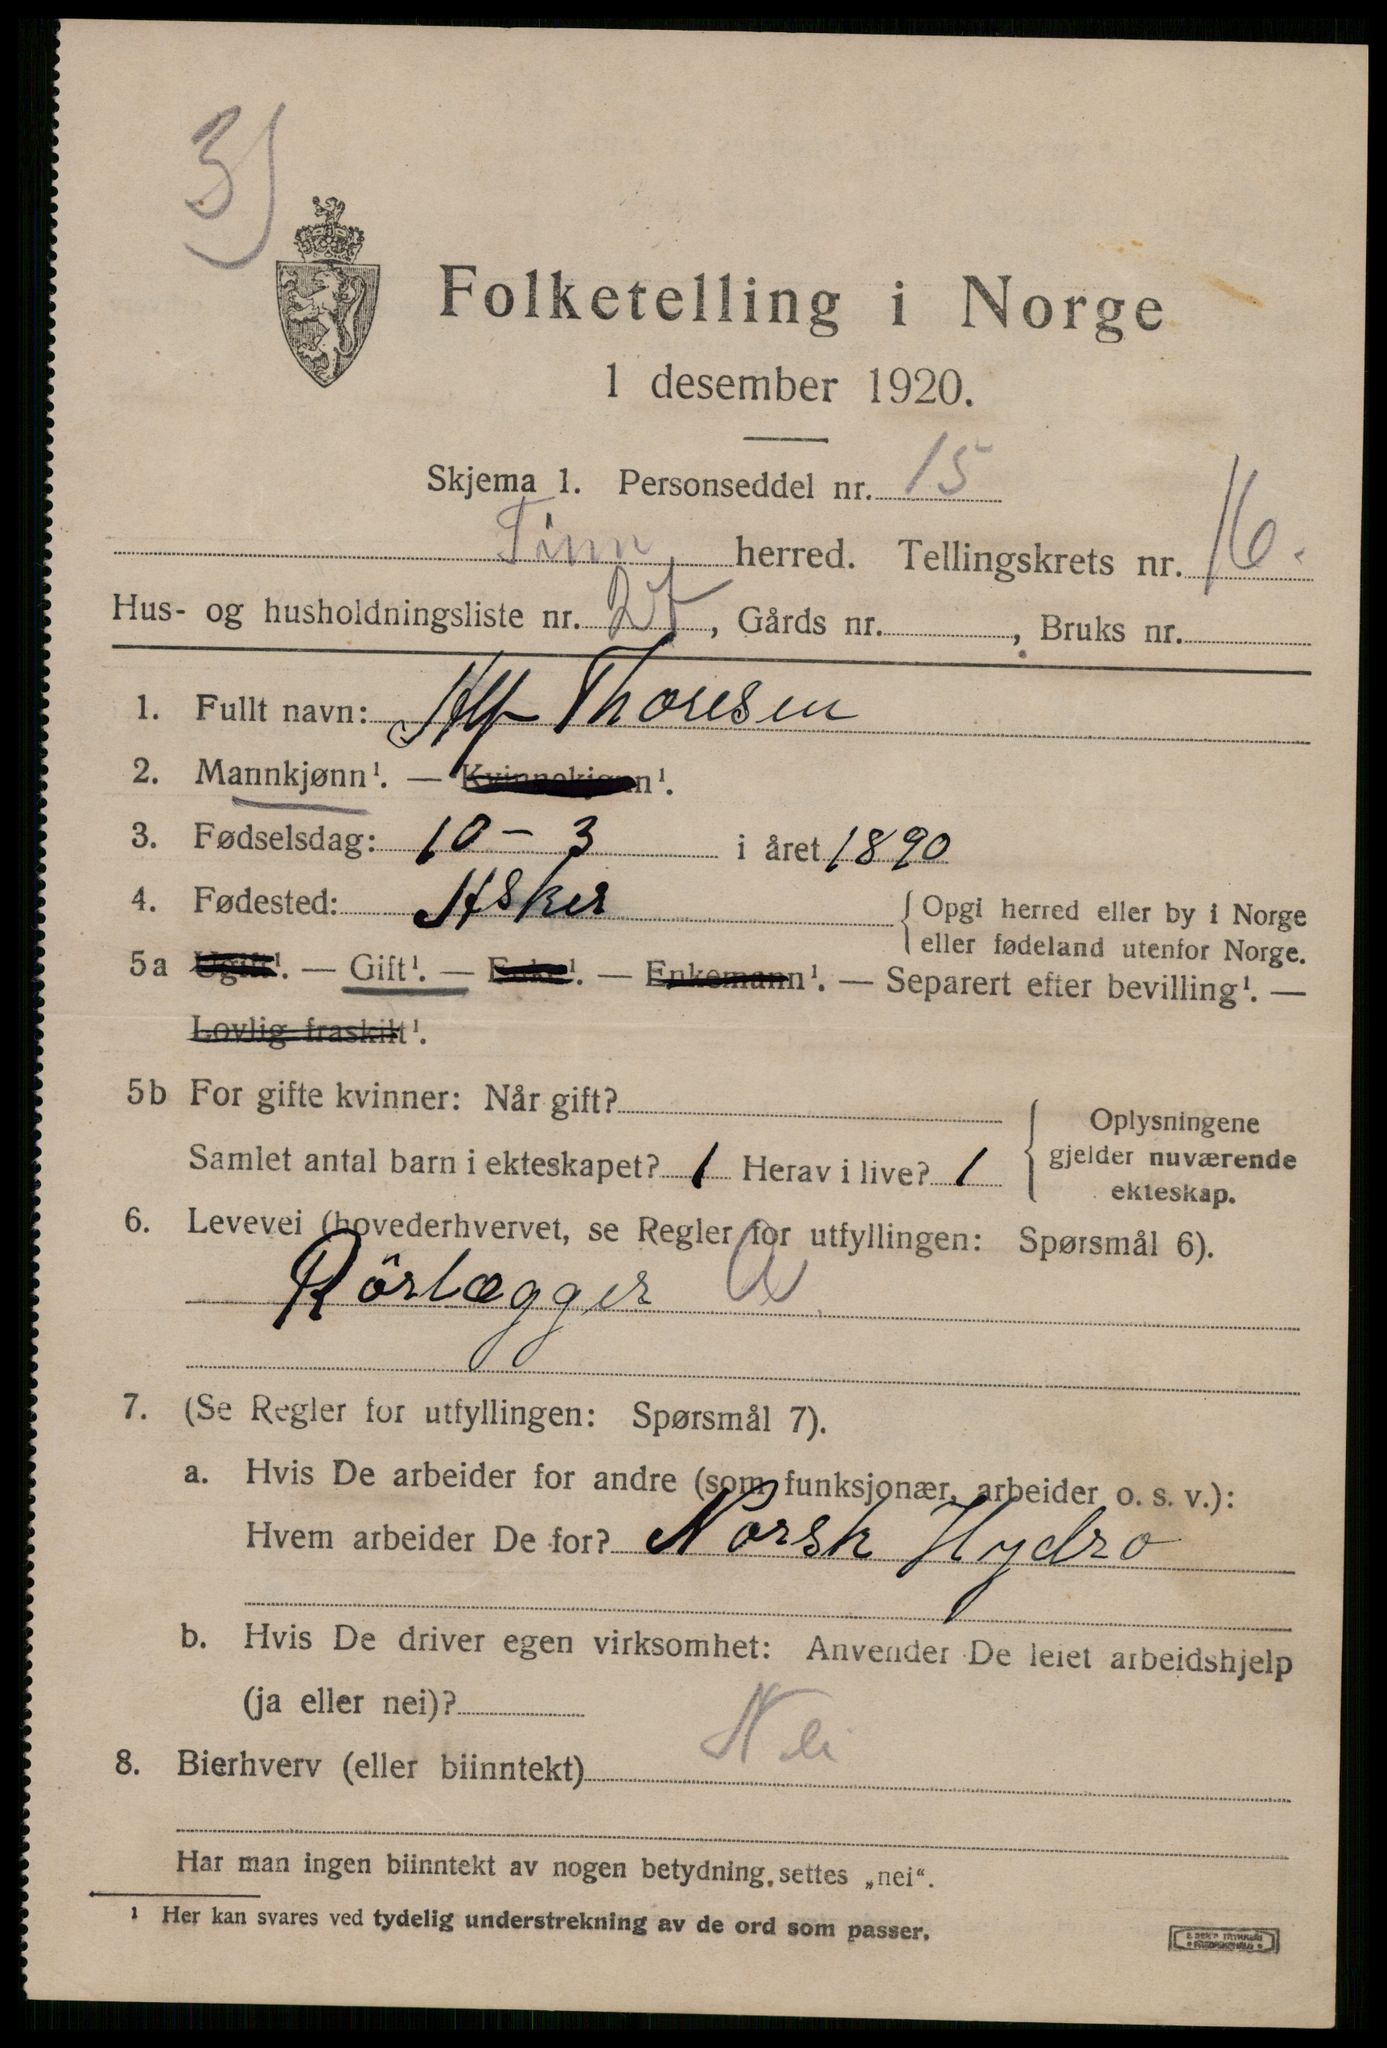 3)
Folketelling i Norge
1 desember 1920.
Skjema 1. Personseddel nr. 15
Tinn herred. Tellingskrets nr. 16.
Hus- og husholdningsliste nr. , Gårds nr. , Bruks nr.
1. Fullt navn: Alf Thoresen
2. Mannkjønn¹. — Kvinnekjønn¹.
3. Fødselsdag: 10 – 3 i året 1890
4. Fødested: Asker { Opgi herred eller by i Norge
eller fødeland utenfor Norge.
5a Ugift¹. — Gift¹. — Enke¹. — Enkemann¹. — Separert efter bevilling¹. —
Lovlig fraskilt¹.
5b For gifte kvinner: Når gift?
Samlet antal barn i ekteskapet? 1 Herav i live? 1 { Oplysningene
gjelder nuværende
ekteskap.
6. Levevei (hovederhvervet, se Regler for utfyllingen: Spørsmål 6).
Rörlægger
7. (Se Regler for utfyllingen: Spørsmål 7).
a. Hvis De arbeider for andre (som funksjonær, arbeider o. s. v.):
Hvem arbeider De for? Norsk Hydro
b. Hvis De driver egen virksomhet: Anvender De leiet arbeidshjelp
(ja eller nei)?
8. Bierhverv (eller biinntekt) Nei
Har man ingen biinntekt av nogen betydning, settes „nei“.
¹ Her kan svares ved tydelig understrekning av de ord som passer.